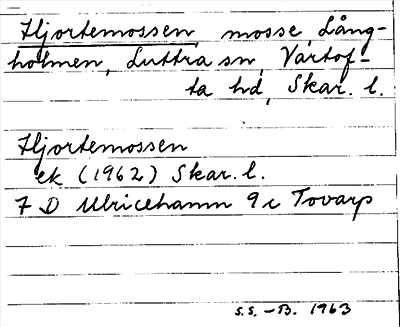 Hjortemossen, mosse, Lång-
holmen, Luttra sn, Vartof-
ta hd, Skar. l.
Hjortemossen
ek (1962) Skar. l.
7 D Ulricehamn 9 c Tovarp
S.S. - B. 1963